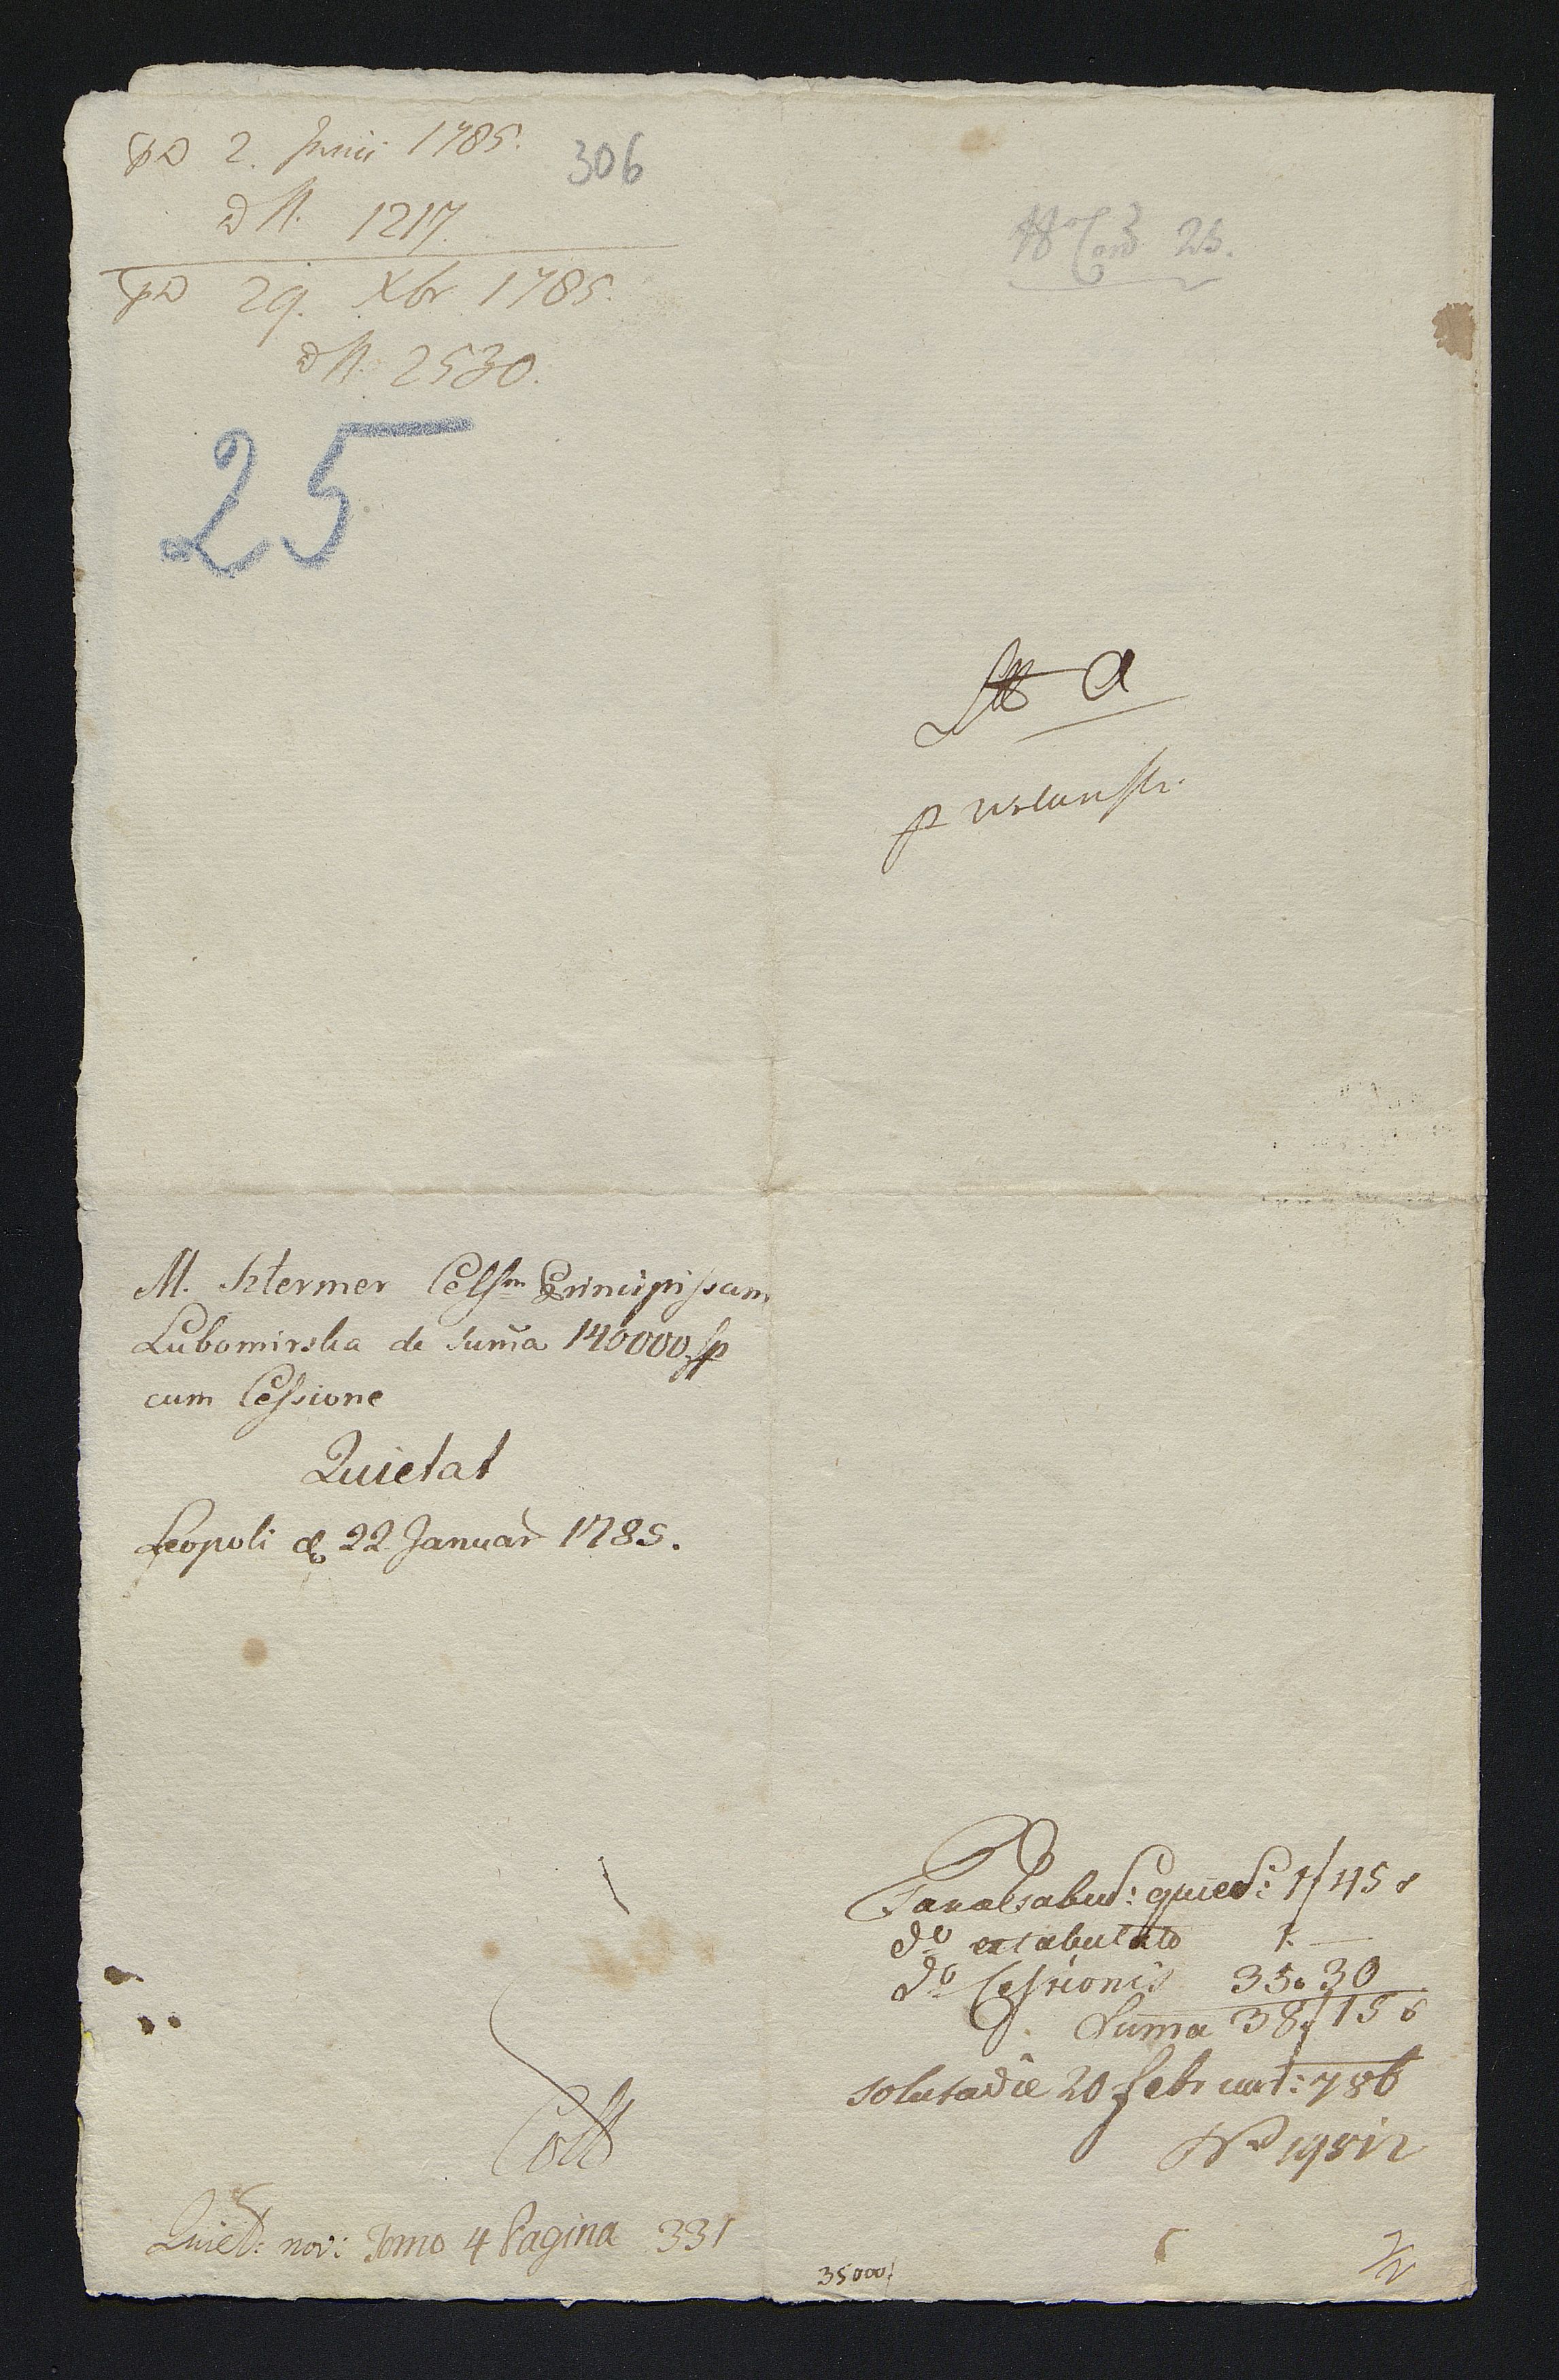 2. Junii 1785.
306
1217.
29. Xbr 1785.
2530.
25
25.
Ltt A
M. Sztermer Celsm Principissam
Lubomirska de Suma 140000 fp
cum Cessione
Quietat
Leopoli d 22 Januar 1785.
Taxa Intabul: quiet: 1 f 45 x
do extabulatio 1. —
do Cessionis 35. 30
Suma 38 f 15 x
soluta die 20 februar: 786
Coll
Quiet: nov: Tomo 4 Pagina 331
35000